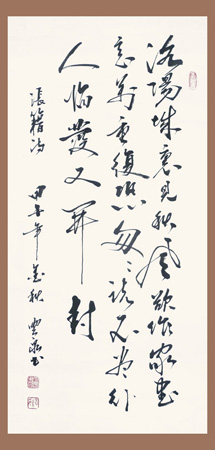 洛陽城裏見秋風欲作家書
意萬重復恐匆〻說不盡行
人臨發又開封
張籍詩
年 秋 書